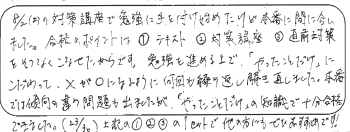 8/2(月)の対策講座で勉強に手を付け始めたけど本番に間に合い
ました。合格のポイントは ① テキスト ② 対策講座 ③ 直前対策
をそつなくこなせたからです。勉強を進める上で、「やったことだけ」に
こだわって、×が○になるように何回か繰り返し解き直しました。本番
では傾向の違の問題も出ましたが、「やったことだけ」の知識で十分合格
できました。(23/30) 上記の①②③の1セットで他の方にもぜひおすすめです!